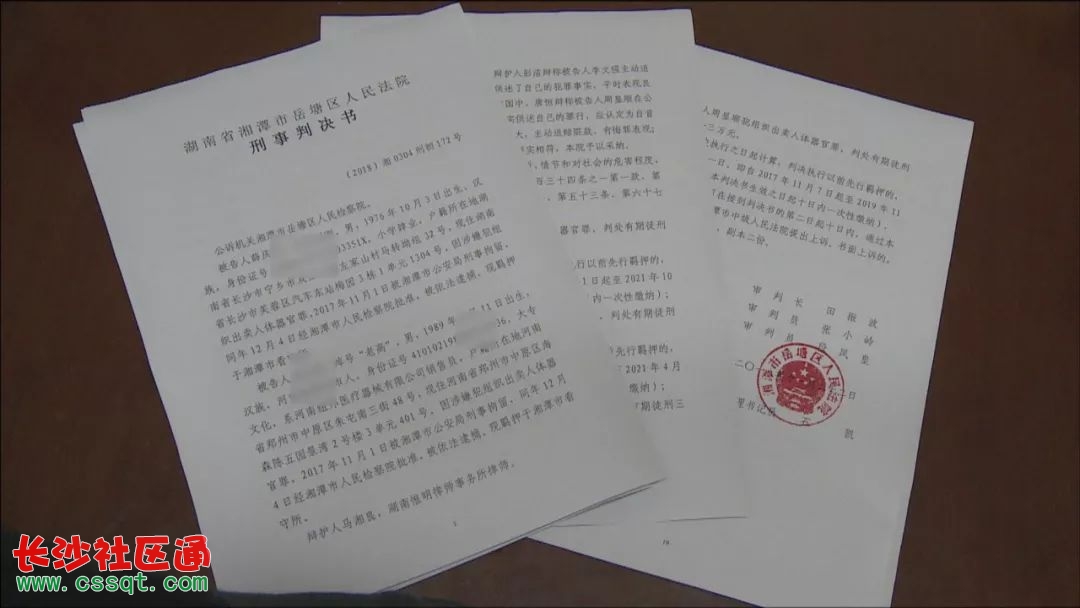 湖南省湘潭市岳塘区人民法院
刑事判决书
（2018）湘0304刑初172号
公诉机关湘潭市岳塘区人民检察院。
被告人薛 男，1976年10月3日出生，汉
族，身份证号 03351X，小学肄业，户籍所在地湖
南省长沙市宁乡市 左家山村马转坳组32号，现住湖南
省长沙市芙蓉区汽车东站梅园3栋1单元1304号。因涉嫌犯组
织出卖人体器官罪，2017年11月1日被湘潭市公安局刑事拘留，
同年12月4日经湘潭市人民检察院批准，被依法逮捕，现羁押
于湘潭市看
被告人 “老高”，男，1989年 11日出生，
汉族，河 人，身份证号410102198 36，大专
文化，系河南 医疗器械有限公司销售员，户籍所在地河南
省郑州市中原区朱屯南三街48号，现住河南省郑州市中原区海
森陈五园景湾2号楼3单元401号。因涉嫌犯组织出卖人体器
官罪，2017年11月1日被湘潭市公安局刑事拘留，同年12月
4日经湘潭市人民检察院批准，被依法逮捕，现羁押于湘潭市看
守所。
辩护人马湘良，湖南惟明律师事务所律师。
1
辩护人彭洁辩称被告人李文强主动退
供述了自己的犯罪事实，平时表现良
国中、唐恒辩称被告人周显顺在公
供述自己的罪行，应认定为自首
大，主动退赔赃款，有悔罪表现；
实相符，本院予以采纳。
，情节和对社会的危害程度，
百三十四条之一第一款、第
、第五十三条、第六十七
器官罪，判处有期徒刑
执行以前先行羁押的，
1日起至2021年10
内一次性缴纳）；
，判处有期徒刑
前先行羁押的，
2021年4月
缴纳）；
期徒刑三
人周显顺犯组织出卖人体器官罪，判处有期徒刑
三万元。
执行之日起计算，判决执行以前先行羁押的，
一日，即自2017年11月7日起至2019年11
本判决书生效之日起十日内一次性缴纳）。
在接到判决书的第二日起十日内，通过本
潭市中级人民法院提出上诉。书面上诉的，
，副本二份。
审 判 长 田 振 波
审 判 员 张 小 岭
审 判 员 段 凤 皇
二〇 日
书记员 凯
湘潭市岳塘区人民法院
19
长沙社区通
www.cssqt.com